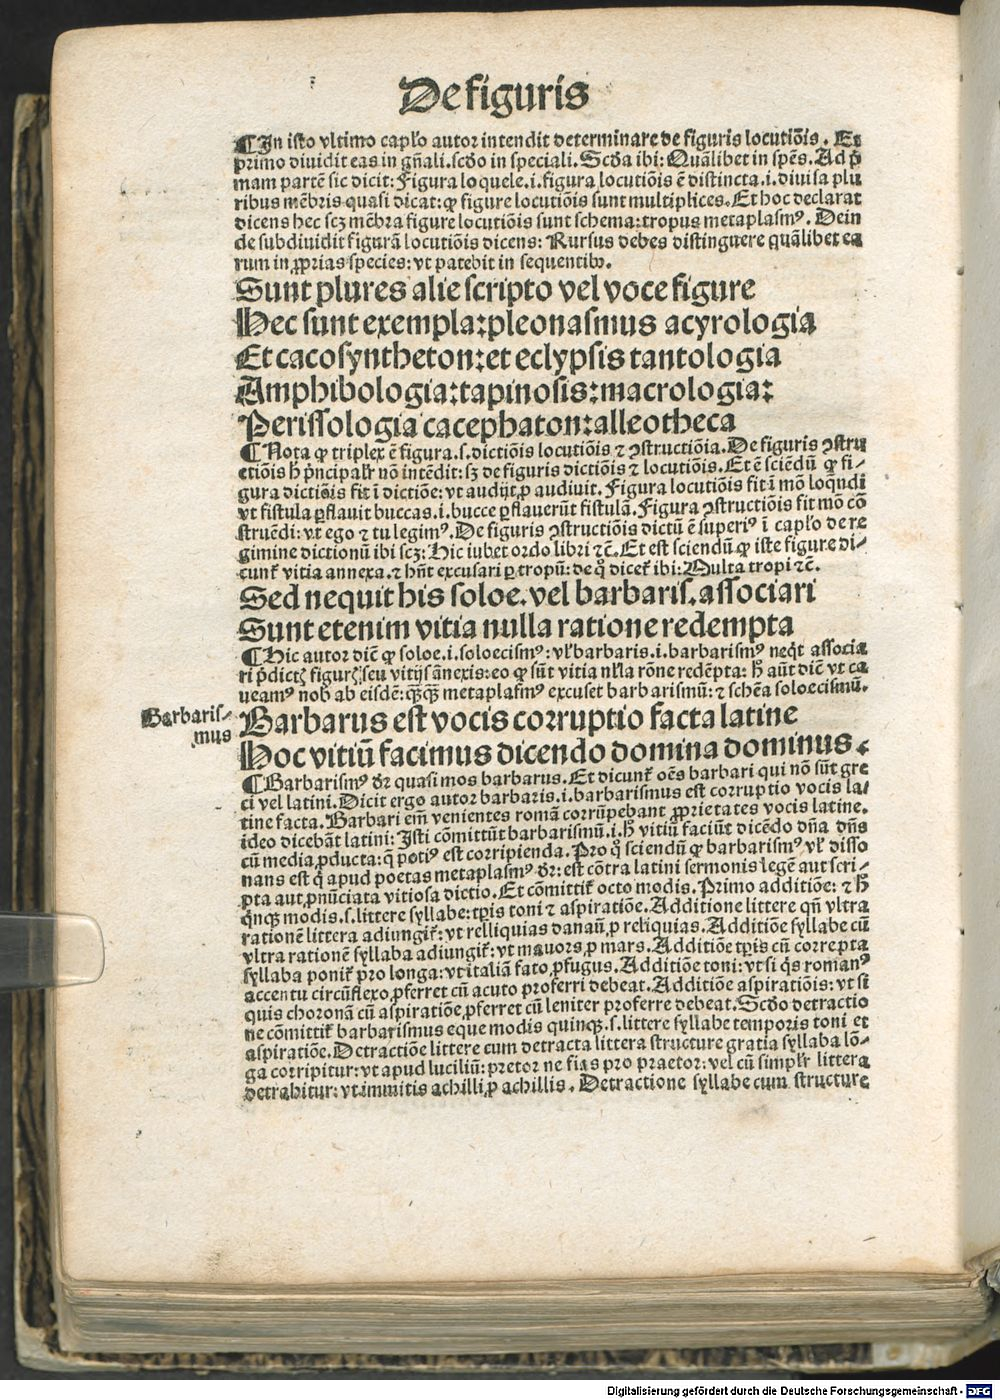 De figuris
¶In isto vltimo capło autor intendit determinare de figuris locutiõis. Et
primo diuidit eas in gñali. scďo in speciali. Scďa ibi: Quãlibet in spẽs. Ad p̄
mam partẽ sic dicit: Figura loquele .i. figura locutiõis ẽ distincta .i. diuisa plu
ribus mẽbris quasi dicat: ꝙ figure locutiõis sunt multiplices. Et hoc declarat
dicens hec scꝫ mẽbra figure locutiõis sunt schema: tropus metaplasmꝰ. Dein
de subdiuidit figurã locutiõis dicens: Rursus debes distinguere quãlibet ea
rum in ꝓprias species: vt patebit in sequentibꝰ.
Sunt plures alie scripto vel voce figure
Hec sunt exempla: pleonasmus acyrologia
Et cacosyntheton: et eclypsis tantologia
Amphibologia: tapinosis: macrologia:
Perissologia cacephaton: alleotheca
¶Nota ꝙ triplex ẽ figura .s. dictiõis locutiõis ⁊ ꝯstructiõis. De figuris ꝯstru
ctiõis ħ p̄ncipalr̃ nõ intẽdit: sꝫ de figuris dictiõis ⁊ locutiõis. Et ẽ sciẽdũ ꝙ fi-
gura dictiõis fit ĩ dictiõe: vt audijt ꝓ audiuit. Figura locutiõis fit ĩ mõ loq̃ndi
vt fistula ꝑflauit buccas .i. bucce ꝑflauerũt fistulã. Figura ꝯstructiõis fit mõ cõ
struẽdi: vt ego ⁊ tu legimꝰ. De figuris ꝯstructiõis dictũ ẽ superiꝰ ĩ capło de re
gimine dictionũ ibi scꝫ: Hic iubet ordo libri ⁊c̃. Et est sciendũ ꝙ iste figure di-
cunt̃ vitia annexa. ⁊ hñt excusari ꝑ tropũ: de q̊ dicet̃ ibi: Multa tropi ⁊c̃.
Sed nequit his soloe. vel barbaris. associari
Sunt etenim vitia nulla ratione redempta
¶Hic autor diẽc̃ ꝙ soloe .i. soloecismꝰ: vł barbaris .i. barbarismꝰ neq̃t associa
ri p̄dictꝭ figurꝭ seu vitijs ãnexis: eo ꝙ sũt vitia nłła rõne redẽpta: ħ aũt diẽc̃ vt ca
ueamꝰ nob ab eisdẽ: q̃ꝙ̃ metaplasmꝰ excuset barbarismũ: ⁊ schẽa soloecismũ.
Barbaris-
mus
Barbarus est vocis corruptio facta latine
Hoc vitiũ facimus dicendo domina dominus.
¶Barbarismꝰ dr̃ quasi mos barbarus. Et dicunt̃ oẽs barbari qui nõ sũt gre
ci vel latini. Dicit ergo autor barbaris .i. barbarismus est corruptio vocis la-
tine facta. Barbari em̃ venientes romã corrũpebant ꝓprietates vocis latine.
ideo dicebãt latini: Isti cõmittũt barbarismũ .i. ħ vitiũ faciũt dicẽdo dña dñs
cũ media ꝓducta: q̃ potiꝰ est corripienda. Pro q̊ sciendũ ꝙ barbarismꝰ vł disso
nans est q̊ apud poetas metaplasmꝰ dr̃: est cõtra latini sermonis legẽ aut scri-
pta aut ꝓnũciata vitiosa dictio. Et cõmittit̃ octo modis. Primo additiõe: ⁊ ħ
q̃nqꝫ modis .s. littere syllabe: tꝑis toni ⁊ aspiratiõe. Additione littere qñ vltra
rationẽ littera adiungit̃: vt relliquias danaũ ꝓ reliquias. Additiõe syllabe cũ
vltra rationẽ syllaba adiungit̃: vt mauors ꝓ mars. Additiõe tꝑis cũ correpta
syllaba ponit̃ pro longa: vt italiã fato ꝓfugus. Additiõe toni: vt si q̃s romanꝰ
accentu circũflexo ꝓferret cũ acuto proferri debeat. Additiõe aspiratiõis: vt si
quis choronã cũ aspiratiõe ꝓferret cũ leniter proferre debeat. Scďo detractio
ne cõmittit̃ barbarismus eque modis quinqꝫ .s. littere syllabe temporis toni et
aspiratiõe. Detractiõe littere cum detracta littera structure gratia syllaba lõ-
ga corripitur: vt apud luciliũ: pretor ne fias pro praetor: vel cũ simplr̃ littera
detrahitur: vt immitis achilli ꝓ achillis. Detractione syllabe cum structure
Digitalisierung gefördert durch die Deutsche Forschungsgemeinschaft - DFG